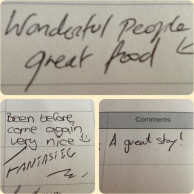 Wonderful people
great food
Been before,
come again
very nice
FANTASTIC
Comments
A great stay!